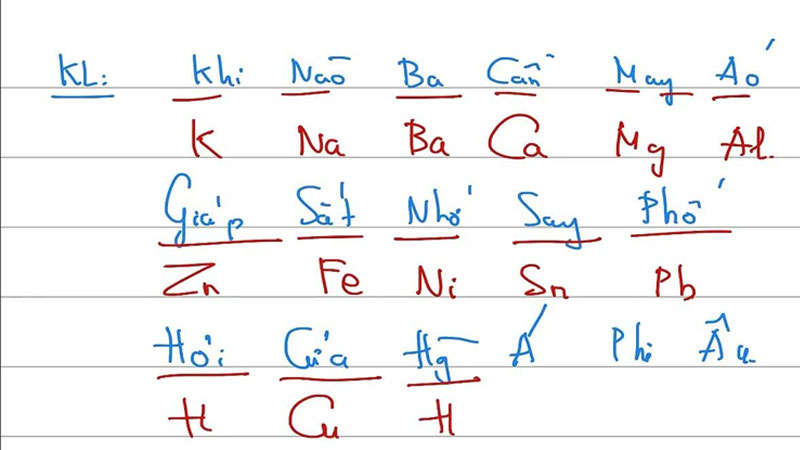 KL: Khi Nào Ba Cần May Áo
K Na Ba Ca Mg Al.
Giáp Sắt Nhớ Say Phố
Zn Fe Ni Sn Pb
Hỏi Cửa Hg Á Phi Âu
H Cu H